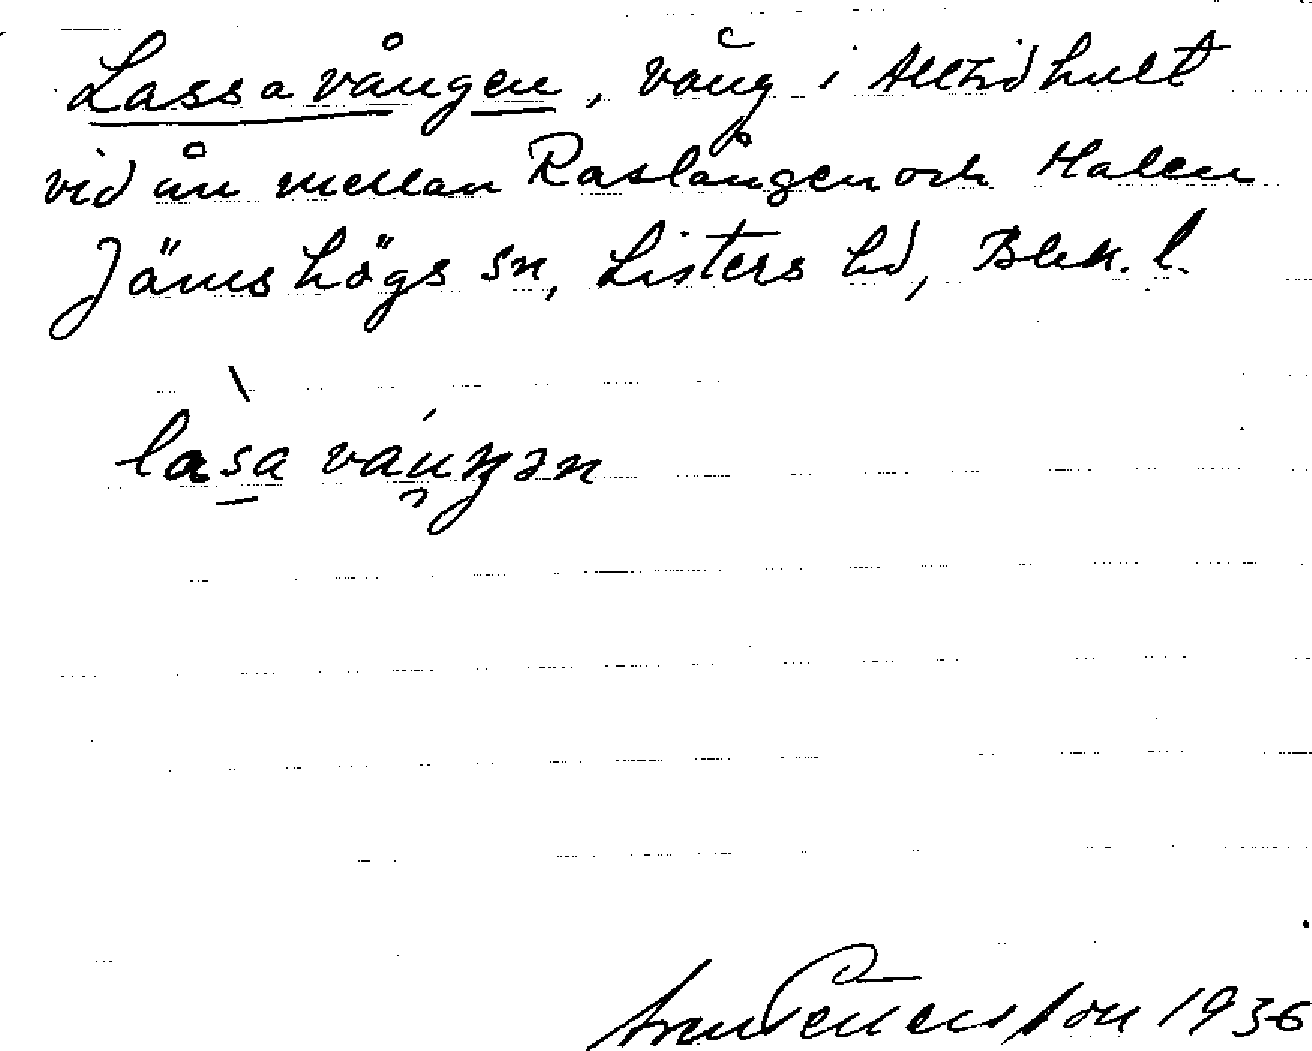 Lassavången, vång i Alltidhult
vid ån mellan Raslången och Halen
Jämshögs sn, Listers hd, Blek. l.
lasa vaŋən
1936